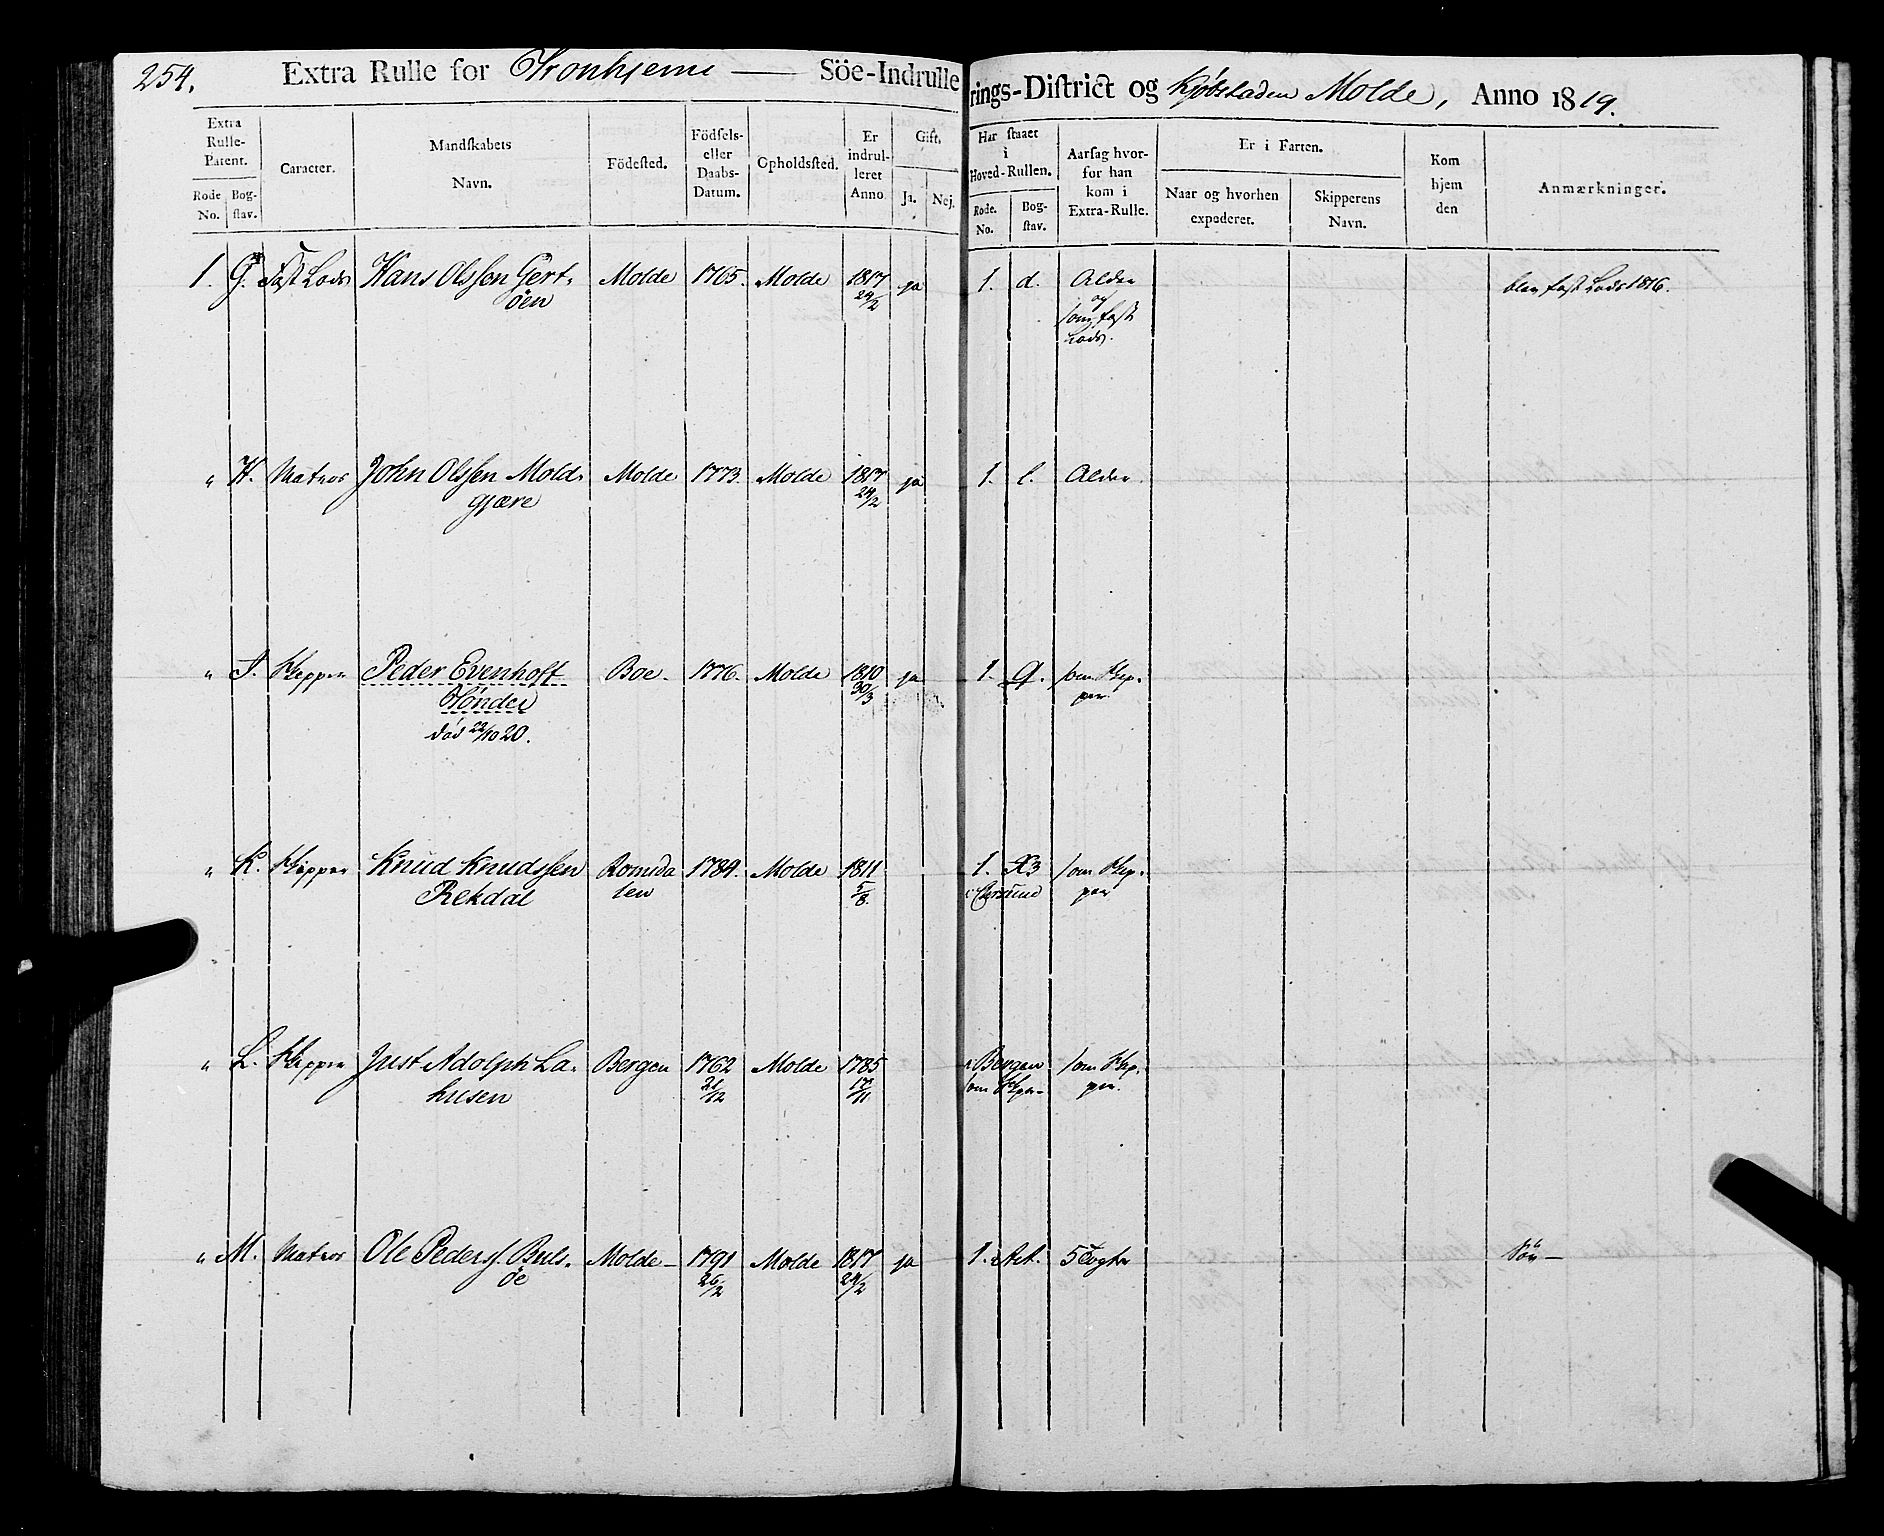 254. Extra Rulle for Tronhjems — Söe-Indrullerings-District og Kjøbstaden Molde, Anno 1819.
Extra Rulle-Patent. Caracter. Mandskabets Navn. Födested. Födsels- eller Daabs-Datum. Opholdssted. Er indrulleret Anno Gift. Har staaet i Hoved-Rullen. Aarsag hvorfor han kom i Extra-Rulle. Er i Farten. Kom hjem den Anmærkninger.
Rode No. Bogstav. Ja. Nej. Rode. No. Bogstav. Naar og hvorhen expederet. Skipperens Navn.
1. G. Fast Lods Hans Olssen Gert- Molde 1765. Molde 1817 ja 1. d. Alder blev fast Lods 1816.
öen 24/2 og
som fast
Lods.
" H. Matros John Olssen Mold- Molde 1773. Molde 1817 ja 1. l. Alder.
gjære 24/2
" I. Skipper Peder Evenhoft Boe. 1776. Molde 1810 ja 1. q. som Skip-
Tönder 30/3 per
död 22/10 20.
" K. Skipper Knud Knudssen Romsda 1784. Molde 1811 1. X3 som Skip-
Rekdal len 5/8. per
" L. Skipper Just Adolph La- Bergen 1762 Molde 1785 i Bergen som Skip-
husen 21/12 17/11 som Skper per.
" M. Matros Ole Peders. Buls- Molde 1791 Molde 1817 ja 1. 5 Togter
öe 26/2 24/2